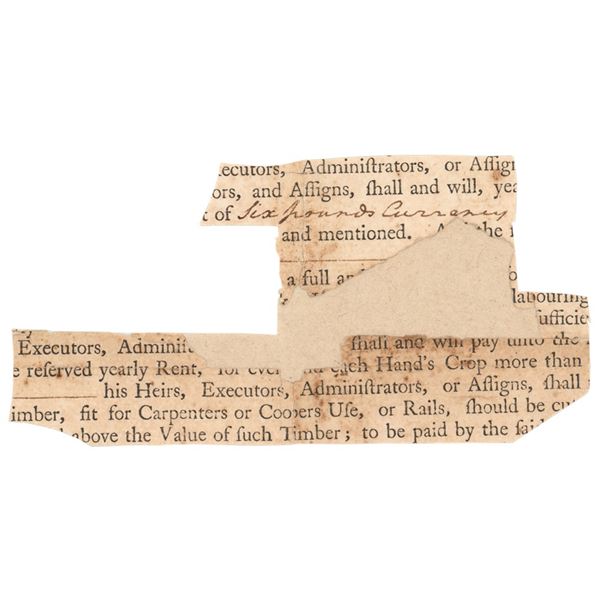 ecutors, Adminiſtrators, or Aſſig
ors, and Aſſigns, ſhall and will, yea
t of Six pounds Currancy
and mentioned. And the
a full an
labouring
ſufficie
Executors, Adminiſt ſhall and will pay unto the
e reſerved yearly Rent, for ever and each Hand's Crop more than
his Heirs, Executors, Adminiſtrators, or Aſſigns, ſhall
imber, fit for Carpenters or Coopers Uſe, or Rails, ſhould be cu
above the Value of ſuch Timber; to be paid by the ſaid